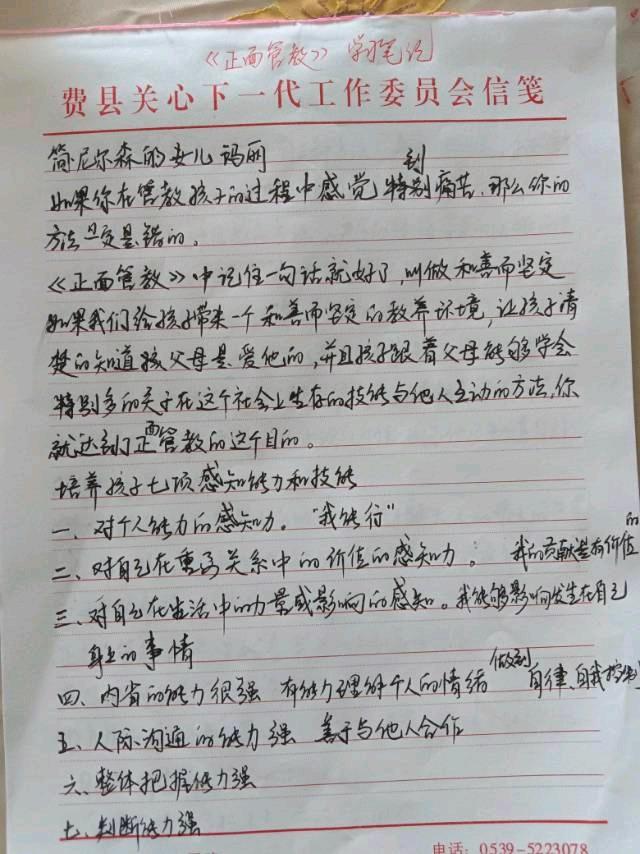 《正面管教》 学习笔记
费县关心下一代工作委员会信笺
简尼尔森的女儿玛丽
如果你在管教孩子的过程中感觉到特别痛苦,那么你的
方法一定是错的。
《正面管教》中记住一句话就好了,叫做和善而坚定
如果我们给孩子带来一个和善而坚定的教养环境,让孩子清
楚的知道孩父母是爱他的,并且孩子跟着父母能够学会
特别多的关于在这个社会上生存的技能与他人互动的方法,你
就达到了正面管教的这个目的。
培养孩子七项感知能力和技能
一、对个人能力的感知力。"我能行"
二、对自己在重要关系中的价值的感知力。 我的贡献是有价值的
三、对自己在生活中的力量或影响的感知。我能够影响发生在自己
身上的事情
四、内省的能力很强 有能力理解个人的情绪 做到自律、自我控制
五、人际沟通的能力强 善于与他人合作
六、整体把握能力强
七、判断能力强
电话:0539-5223078